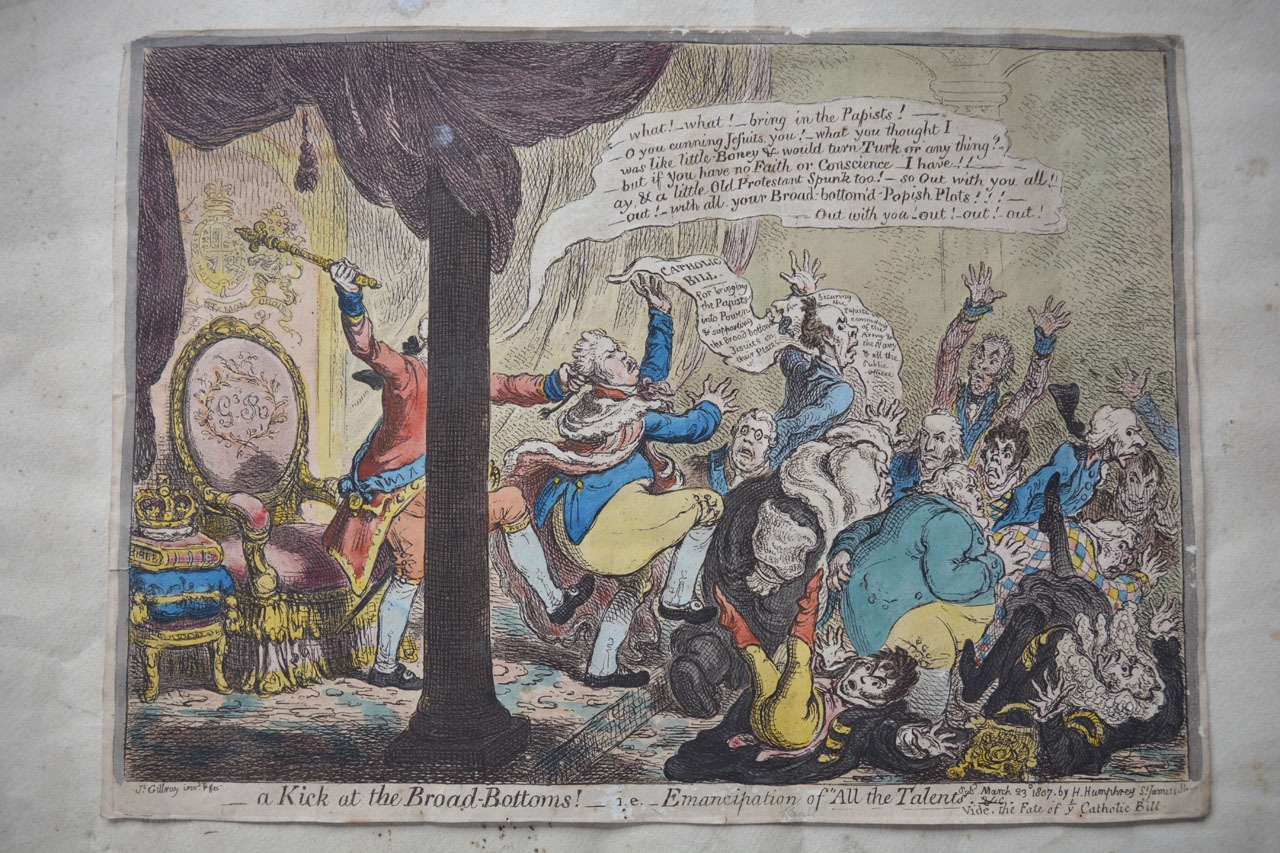 what!_what!_bring in the Papists!
O you cunning Jesuits you!_what you thought I
was like little Boney & would turn Turk or any thing?
but if you have no Faith or Conscience_I have!!
ay, & a little Old Protestant Spunk too!_so Out with you all!!
_out!_with all your Broad-bottom'd-Popish Plots!!!
Out with you_out!_out!_out!
CATHOLIC
BILL
for bringing
the Papists
into Power
& supporting
the Broad bottom
Jesuits in
their Places
Securing
the
Papists
command
of the
Army &
the Navy
& all the
Public
offices
G 3 Rx
BIBLE
Js Gillray invt & fec
_a Kick at the Broad-Bottoms!_i.e._Emancipation of "All the Talents &c.
Pubd March 23d 1807. by H. Humphrey St James's
Vide. the Fate of ye Catholic Bill